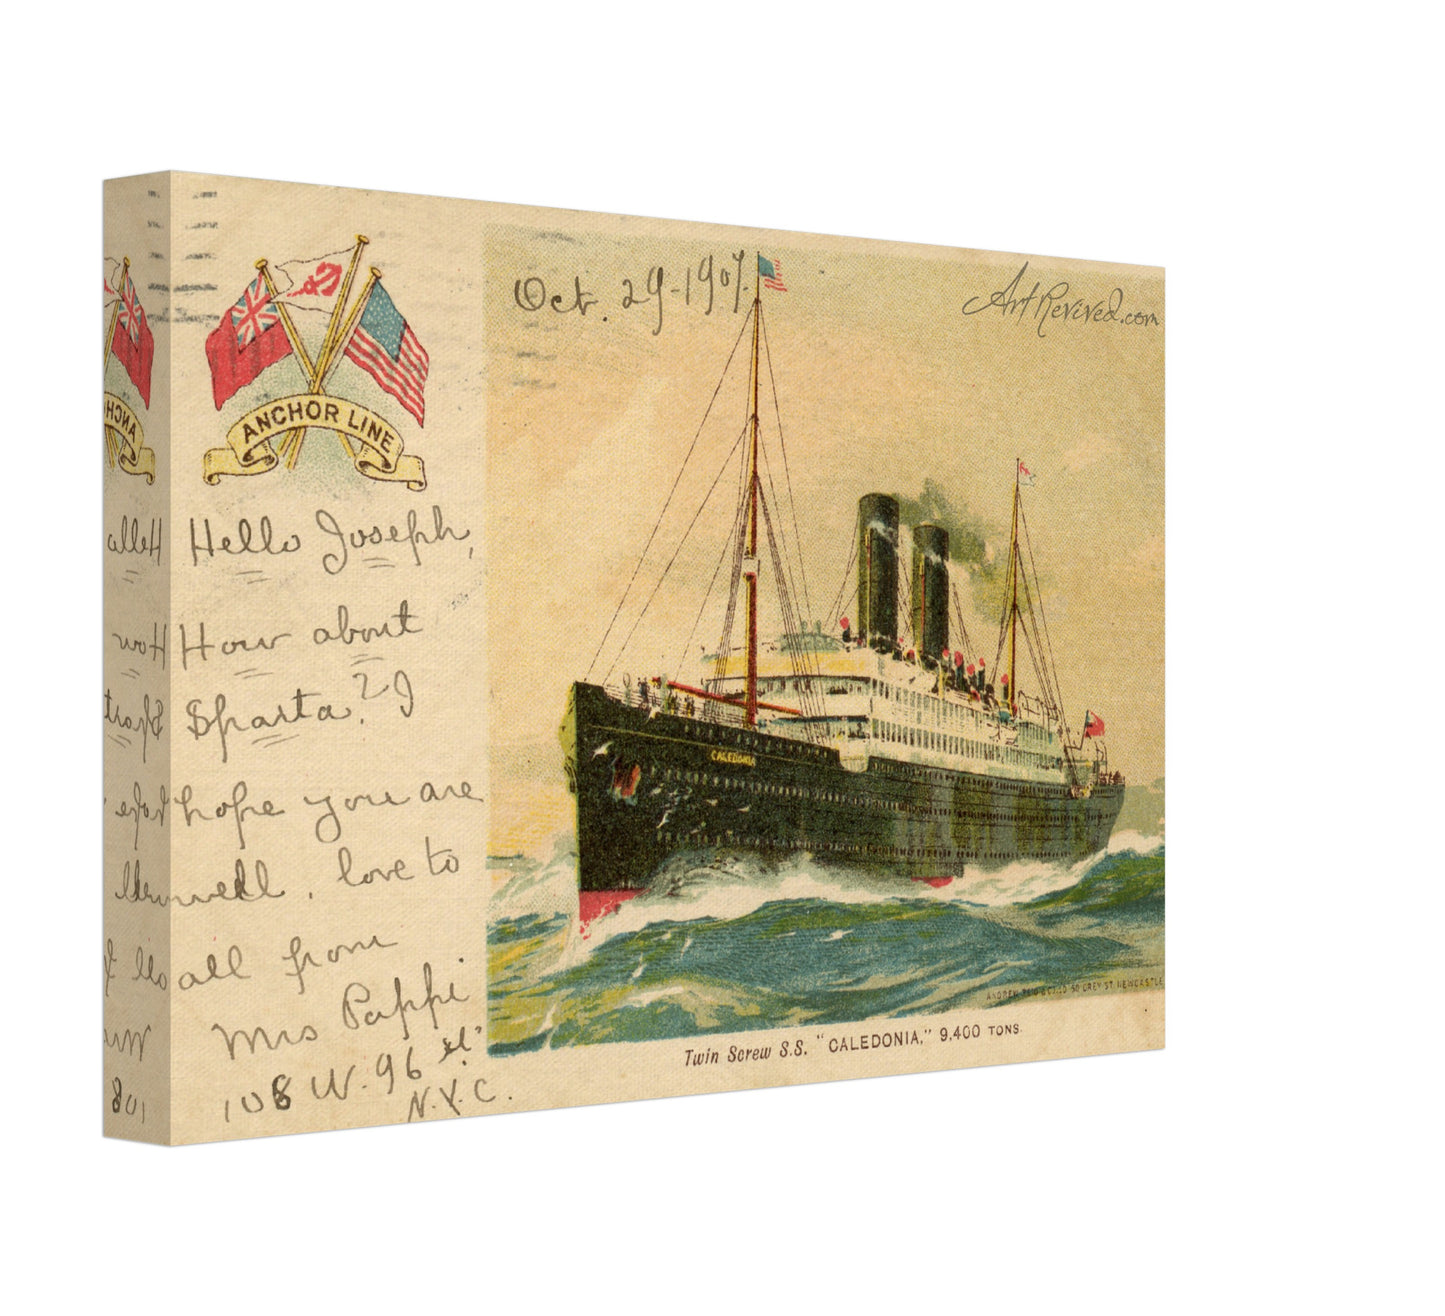 ANCHOR LINE
Oct. 29-1907.
ArtRevived.com
Hello Joseph,
How about
Sparta? I
hope you are
well. love to
all from
Mrs Pappi
108 W. 96 st.
N.Y.C.
CALEDONIA
ANDREW REID & CO. LD 50 GREY ST. NEWCASTLE
Twin Screw S.S. "CALEDONIA," 9,400 TONS